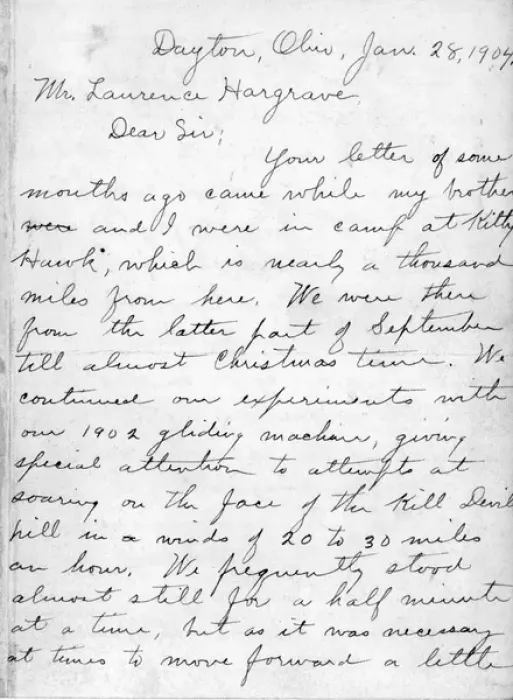 Dayton, Ohio, Jan. 28, 1904.
Mr. Laurence Hargrave,
Dear Sir;
Your letter of some
months ago came while my brother
were and I were in camp at Kitty
Hawk, which is nearly a thousand
miles from here. We were there
from the latter part of September
till almost Christmas time. We
continued our experiments with
our 1902 gliding machine, giving
special attention to attempts at
soaring on the face of the Kill Devil
hill in a winds of 20 to 30 miles
an hour. We frequently stood
almost still for a half minute
at a time, but as it was necessary
at times to move forward a little